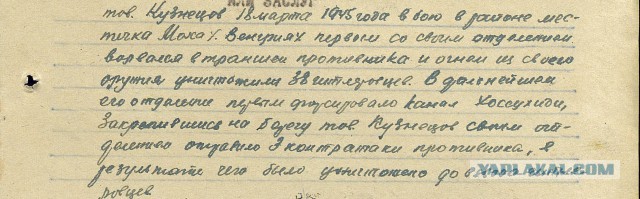 ИЛИ ЗАСЛУГ
тов. Кузнецов 18 марта 1945 года в бою в районе мес-
течка Моха /. Венгрия/ первым со своим отделением
ворвался в траншеи противника и огнем из своего
оружия уничтожили 38 гитлеровцев. В дальнейшем
его отделение первым форсировало канал
Закрепившись на берегу тов. Кузнецов своим от-
делением отразило 3 контратаки противника, в
результате чего было уничтожено до
ровцев
YAPLAKAL.COM